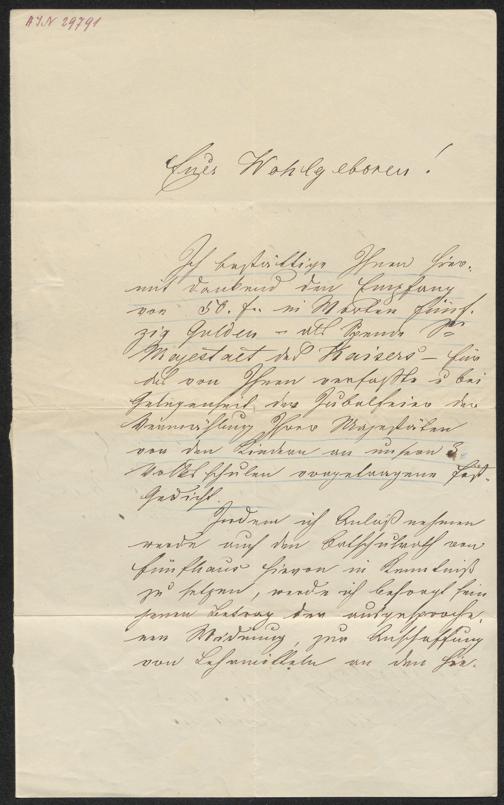 AJN 29791
Euer Wohlgeboren!
Ich bestättige Ihnen hier-
mit dankend den Empfang
von 50. f. in Worten Fünf-
zig Gulden – als Spende Sr
Majestaet des Kaisers – für
das von Ihnen verfaßte u bei
Gelegenheit der Jubelfeier der
Vermählung Ihrer Majestäten
von den Kindern an unseren 3
Volksschulen vorgetragene Fest-
Gedicht.
Indem ich Anlaß nehmen
werde auch den Ortsschulrath von
Fünfhaus hievon in Kenntniß
zu setzen, werde ich besorgt sein
jenen Betrag der ausgesproche-
nen Widmung, zur Anschaffung
von Lehrmitteln an den hie-